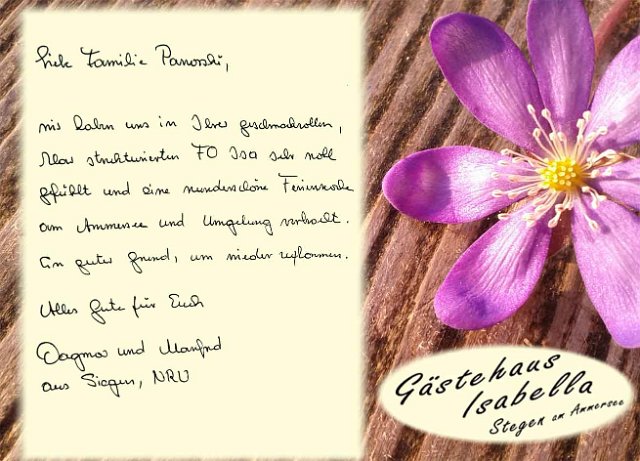 Liebe Familie Panovski,
wir haben uns in Ihrer geschmackvollen,
klar strukturierten FO Isa sehr wohl
gefühlt und eine wunderschöne Ferienwoche
am Ammersee und Umgebung verbracht.
Ein guter Grund, um wieder zukommen.
Alles Gute für Euch
Dagmar und Manfred
aus Siegen, NRW
Gästehaus
Isabella
Stegen am Ammersee